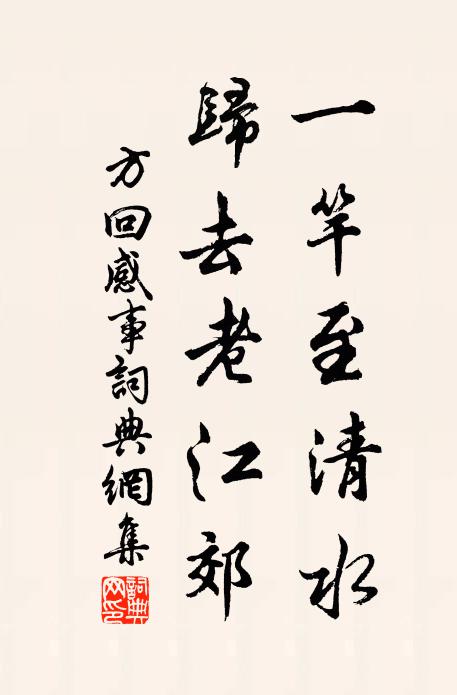 一竿至清水
歸去老江郊
方回感事詞典網集
詞典网印